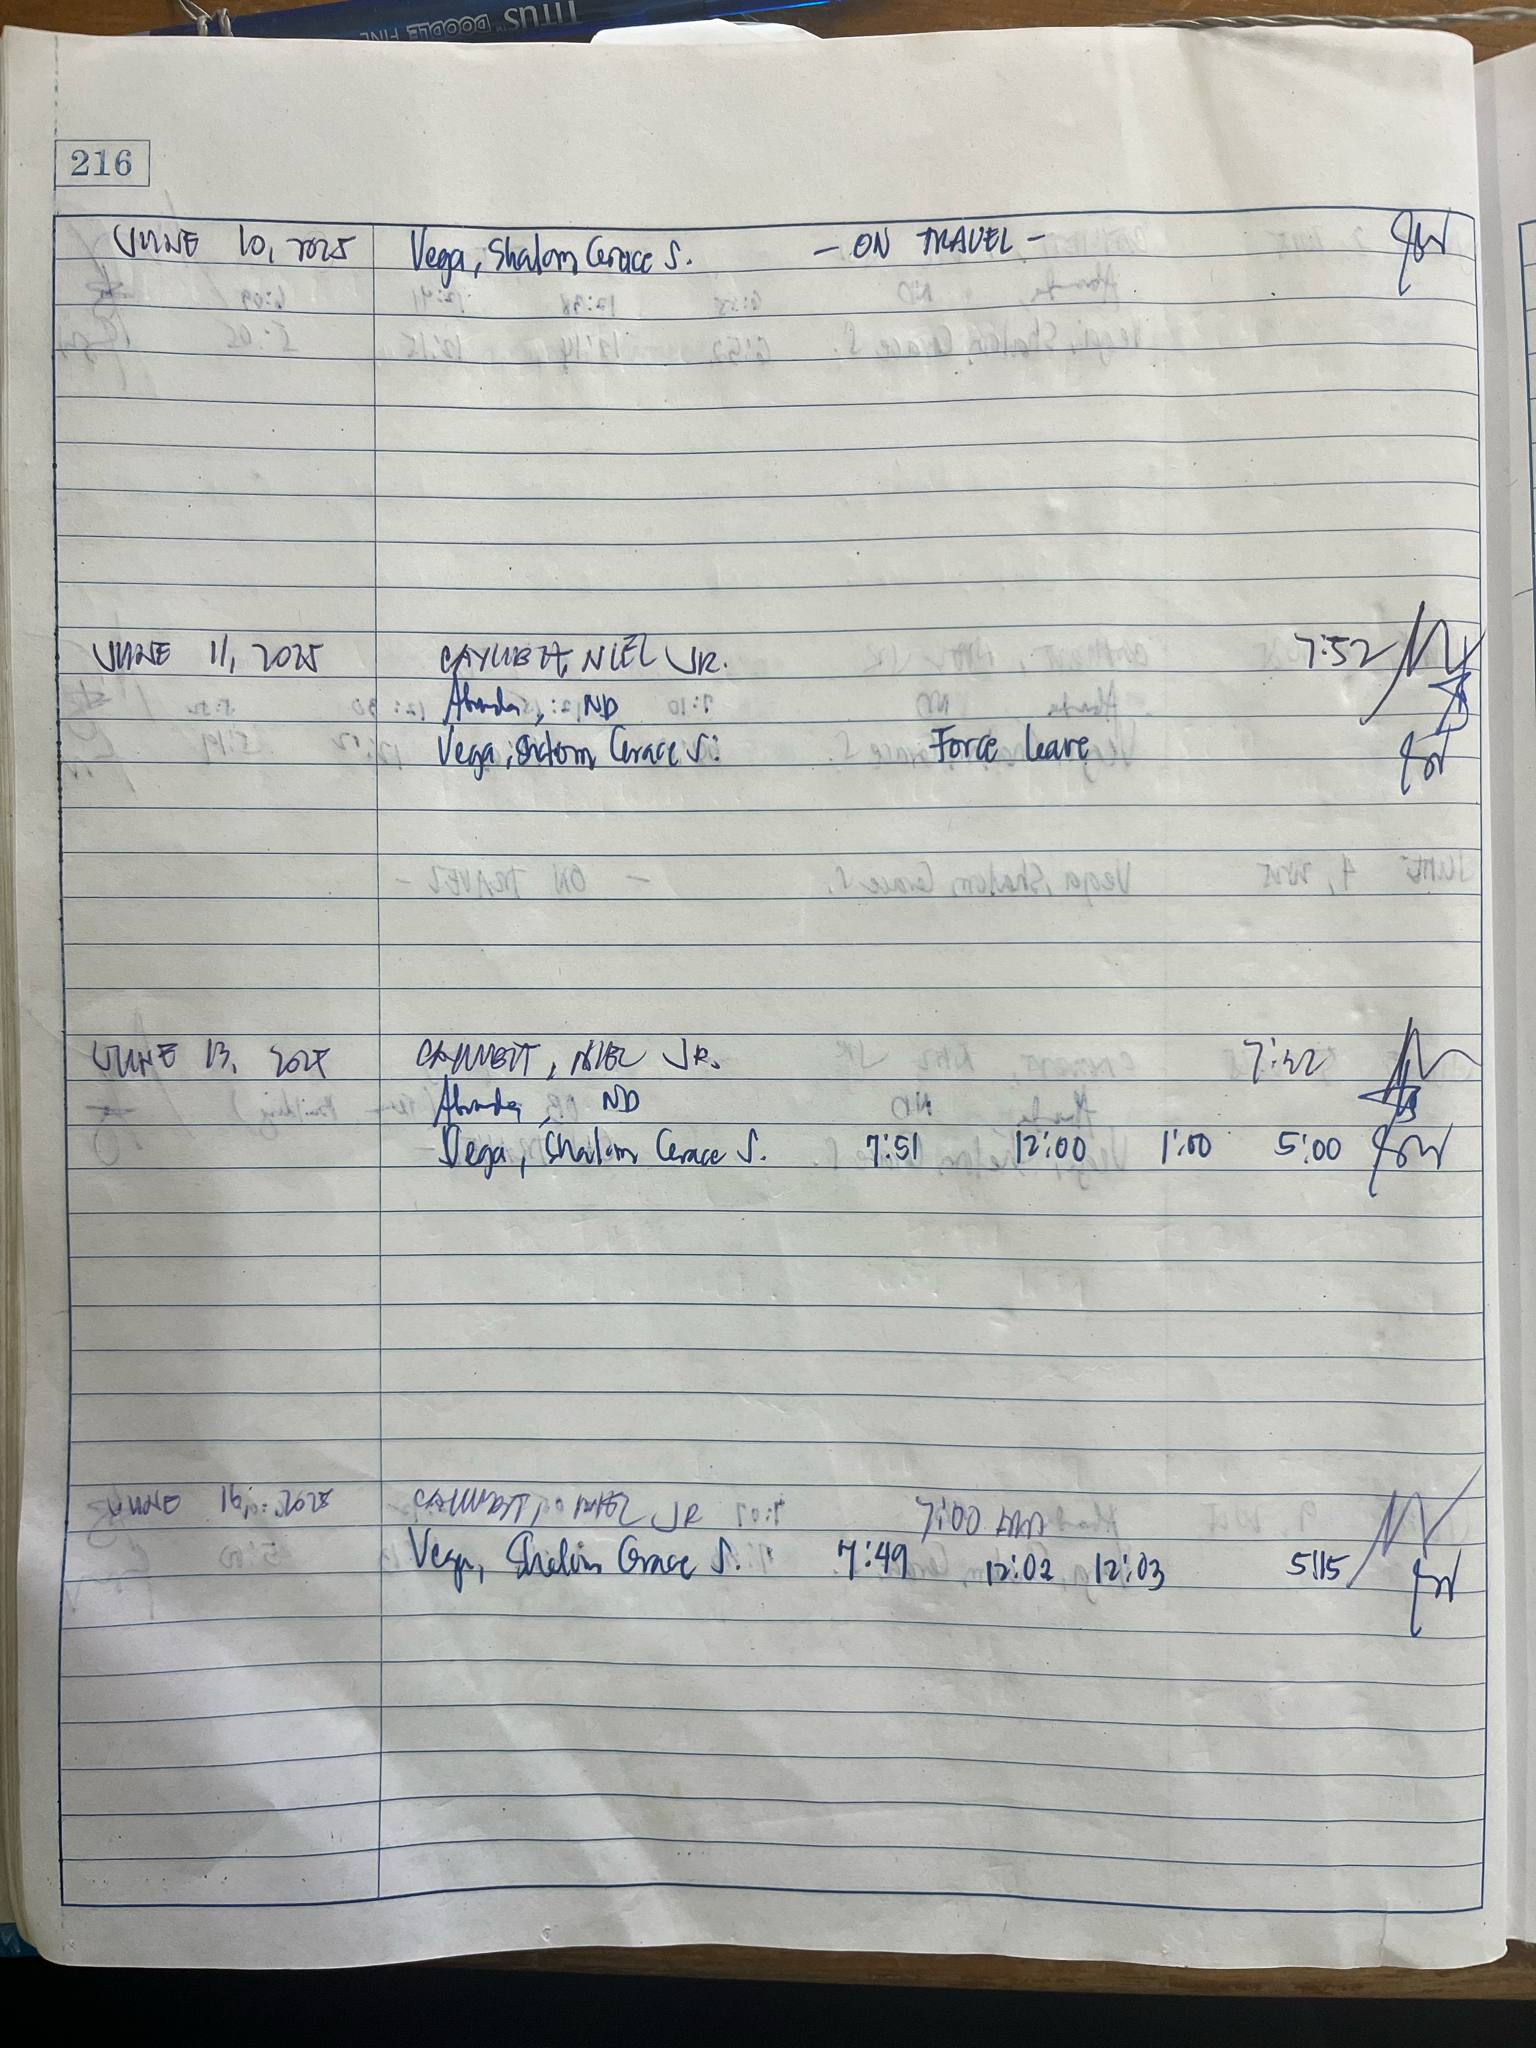 TITUS DOODLE FINE
216
JUNE 10, 2025 Vega, Shalom Grace S. - ON TRAVEL -
JUNE 11, 2025 NIEL JR. 7:52
ND
Vega, Shalom Grace S. Force leave
JUNE 13, 2025 NIEL JR. 7:22
ND
Vega, Shalom Grace S. 7:51 12:00 1:00 5:00
JUNE 16, 2025 NIEL JR 7:00 AM
Vega, Shalom Grace S. 7:49 12:02 12:03 5:15